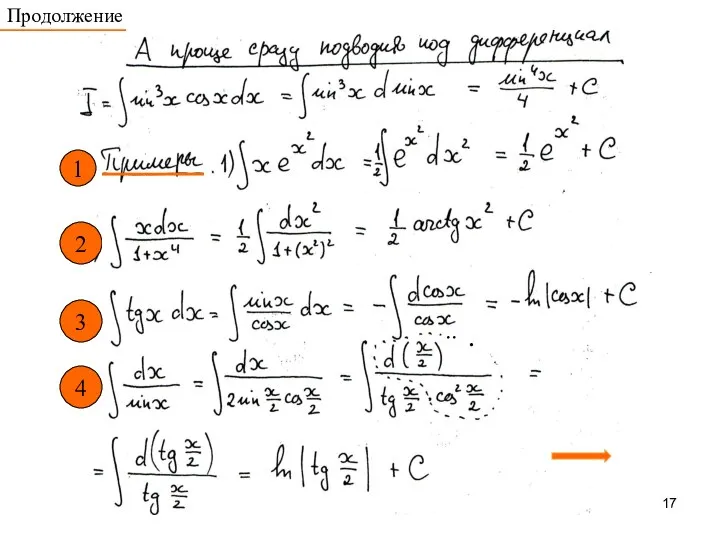 Продолжение
А проще сразу подводить под дифференциал
I = ∫ sin³x cosx dx = ∫ sin³x d sinx = sin⁴x/4 + C
1 Примеры. 1) ∫ x e^(x²) dx = 1/2 ∫ e^(x²) dx² = 1/2 e^(x²) + C
2 ) ∫ xdx/(1+x⁴) = 1/2 ∫ dx²/(1+(x²)²) = 1/2 arctg x² + C
3 ∫ tgx dx = ∫ sinx/cosx dx = - ∫ dcosx/cosx = - ln|cosx| + C
4 ∫ dx/sinx = ∫ dx/(2sin x/2 cos x/2) = ∫ d(x/2)/(tg x/2 · cos² x/2) =
= ∫ d(tg x/2)/(tg x/2) = ln|tg x/2| + C
17